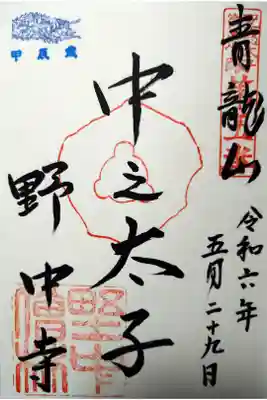 青龍山
令和六年
五月二十九日
中之太子
野中寺
甲辰歳